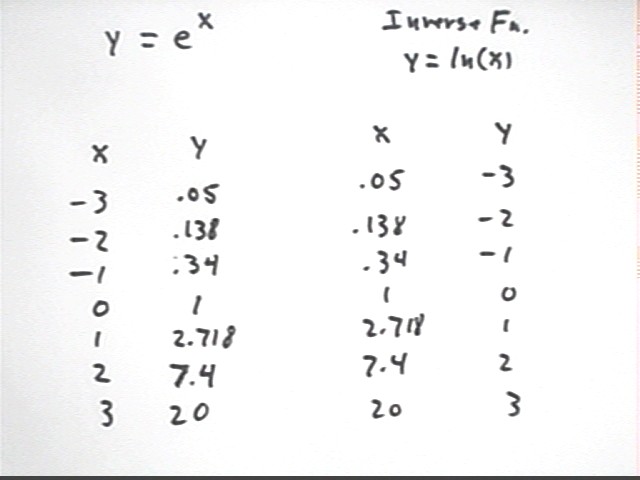 y = e^x
Inverse Fn.
y = ln(x)
x y
-3 .05
-2 .138
-1 .34
0 1
1 2.718
2 7.4
3 20
x y
.05 -3
.138 -2
.34 -1
1 0
2.718 1
7.4 2
20 3